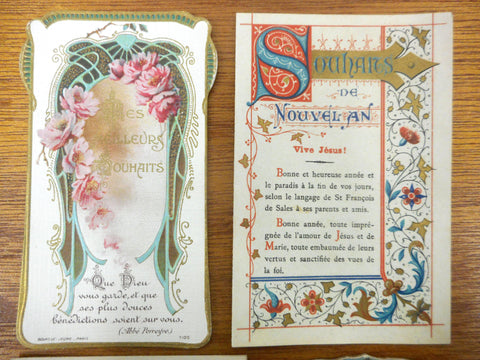 Mes
Meilleurs
Souhaits
Que Dieu
vous garde, et que
ses plus douces
bénédictions soient sur vous.
(Abbé Perreyve.)
BOUASSE-JEUNE, PARIS
Souhaits
DE
NOUVEL AN
Vive Jésus!
Bonne et heureuse année et
le paradis à la fin de vos jours,
selon le langage de St François
de Sales à ses parents et amis.
Bonne année, toute impré-
gnée de l'amour de Jésus et de
Marie, toute embaumée de leurs
vertus et sanctifiée des vues de
la foi.